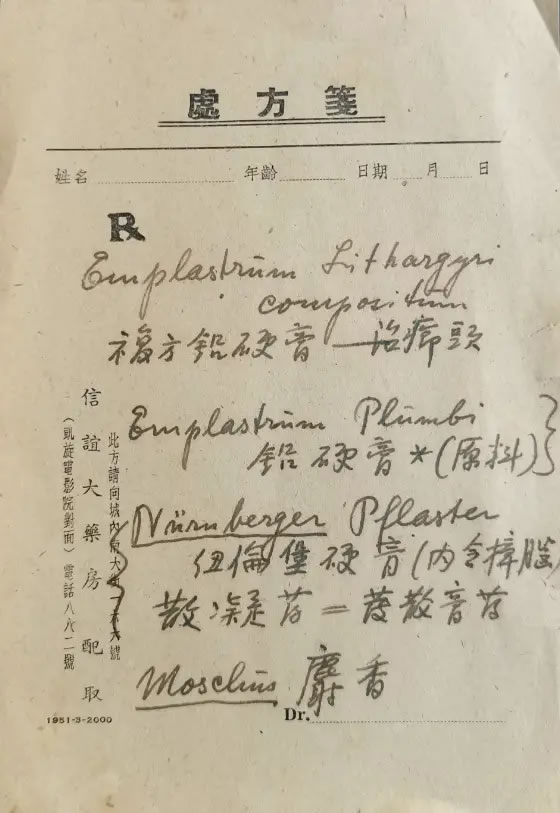 處方箋
姓名 年齡 日期 月 日
℞
Emplastrum Lithargyri
compositum
複方鉛硬膏—治癤頭
Emplastrum Plumbi
鉛硬膏*(原料)
Nürnberger Pflaster
纽倫堡硬膏(内含樟腦
散凝膏
Moschus 麝香
Dr.
此方請向城內
信誼大藥房配取
(凱旋電影院對面)電話八六二號
1951-3-2000